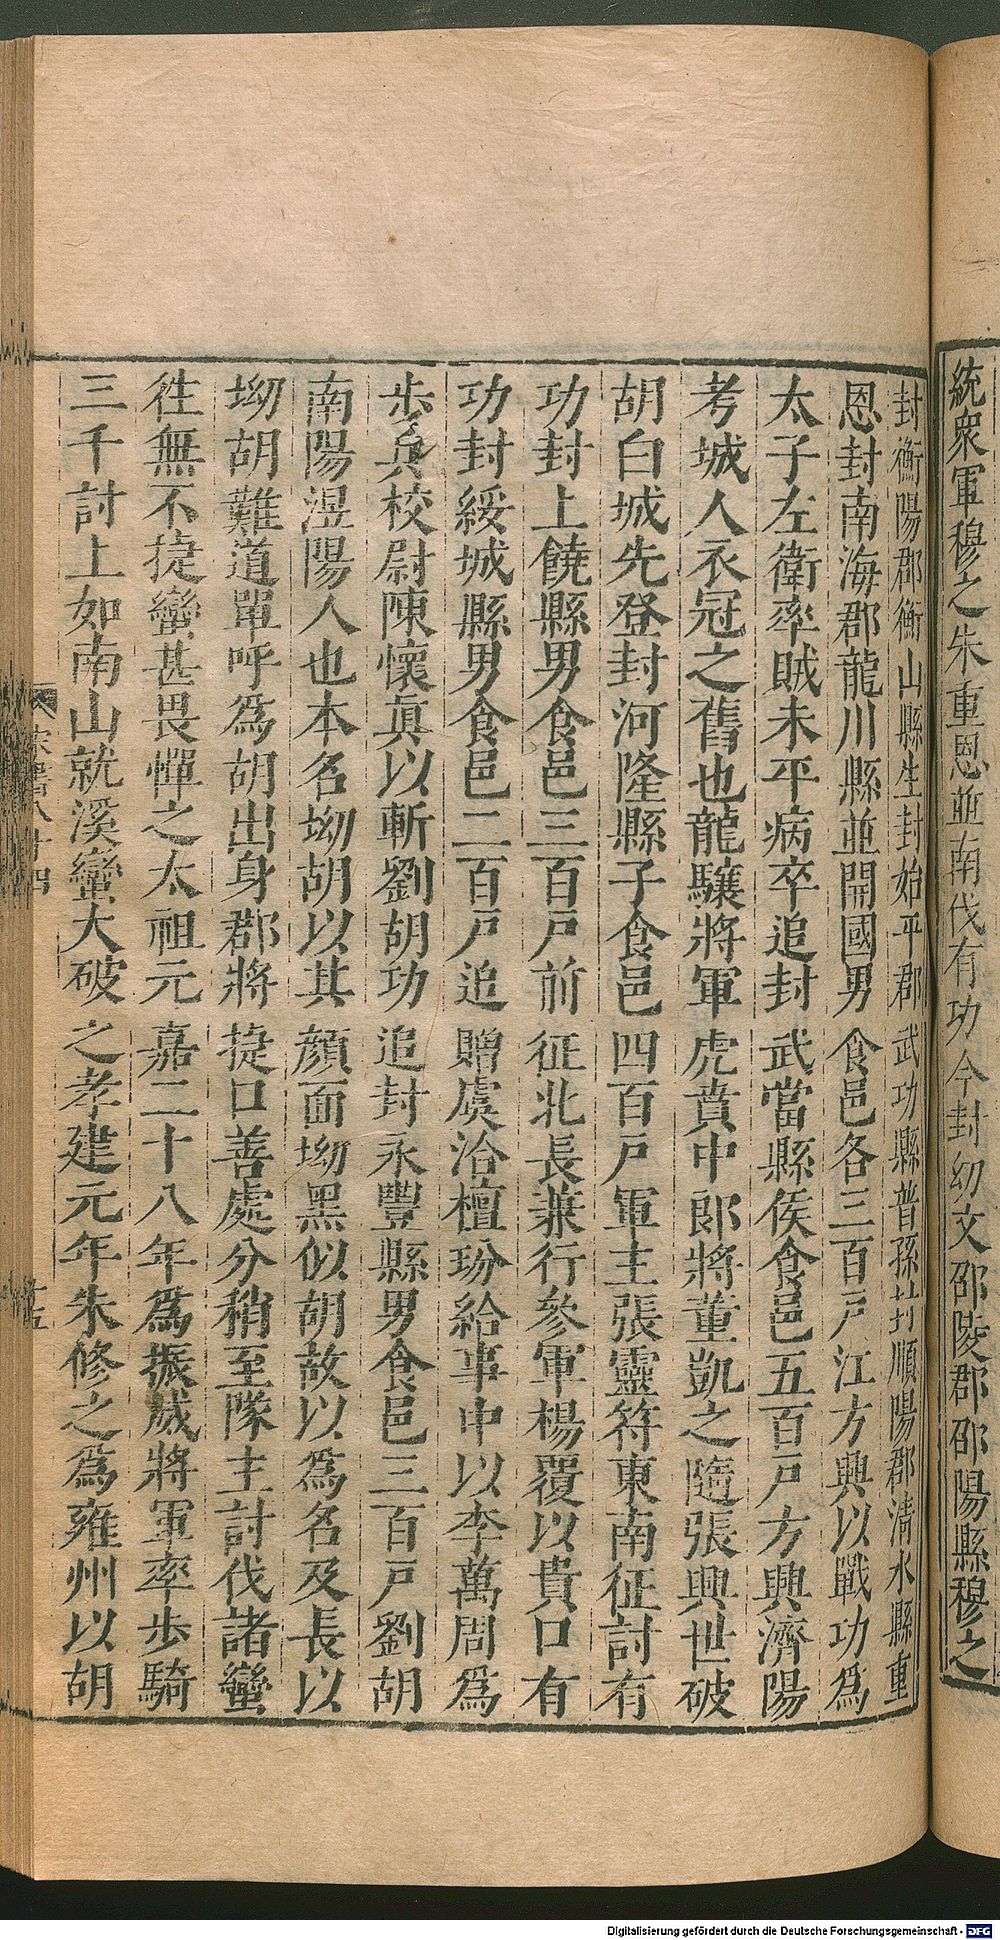 統衆軍穆之朱重恩並南伐有功今封幼文邵陵郡邵陽縣穆之
封衡陽郡衡山縣生封始平郡武功縣普孫封順陽郡清水縣重
恩封南海郡龍川縣並開國男食邑各三百戸江方興以戰功爲
太子左衛率賊未平病卒追封武當縣侯食邑五百戸方興濟陽
考城人衣冠之舊也龍驤將軍虎賁中郎將董凱之隨張興世破
胡白城先登封河隆縣子食邑四百戸軍主張靈符東南征討有
功封上饒縣男食邑三百戸前征北長兼行參軍楊覆以貴口有
功封綏城縣男食邑二百戸追贈虞洽檀玢給事中以李萬周爲
歩兵校尉陳懷眞以斬劉胡功追封永豐縣男食邑三百戸劉胡
南陽涅陽人也本名坳胡以其顔面坳黑似胡故以爲名及長以
坳胡難道單呼爲胡出身郡將捷口善處分稍至隊主討伐諸蠻
徃無不捷蠻甚畏憚之太祖元嘉二十八年爲振威將軍率歩騎
三千討上如南山就溪蠻大破之孝建元年朱修之爲雍州以胡
宋書八十四
十五
Digitalisierung gefördert durch die Deutsche Forschungsgemeinschaft - DFG